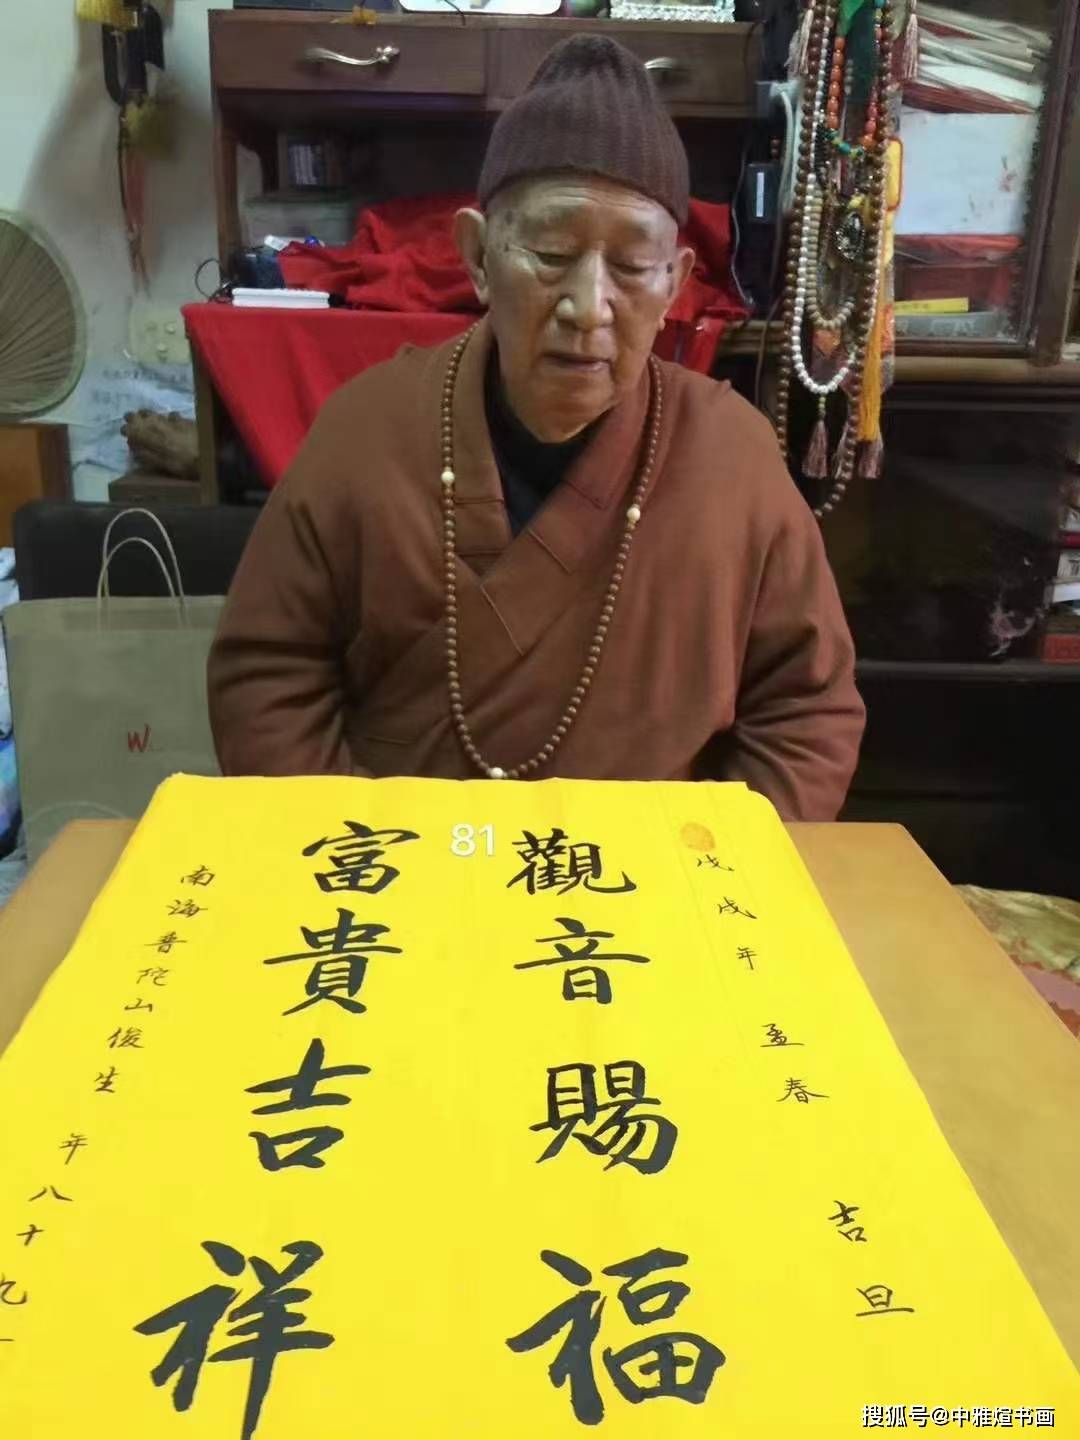 戊戌年孟春吉旦
觀音賜福
富貴吉祥
南海普陀山俊生年八十九
81
W
搜狐号@中雅煊书画